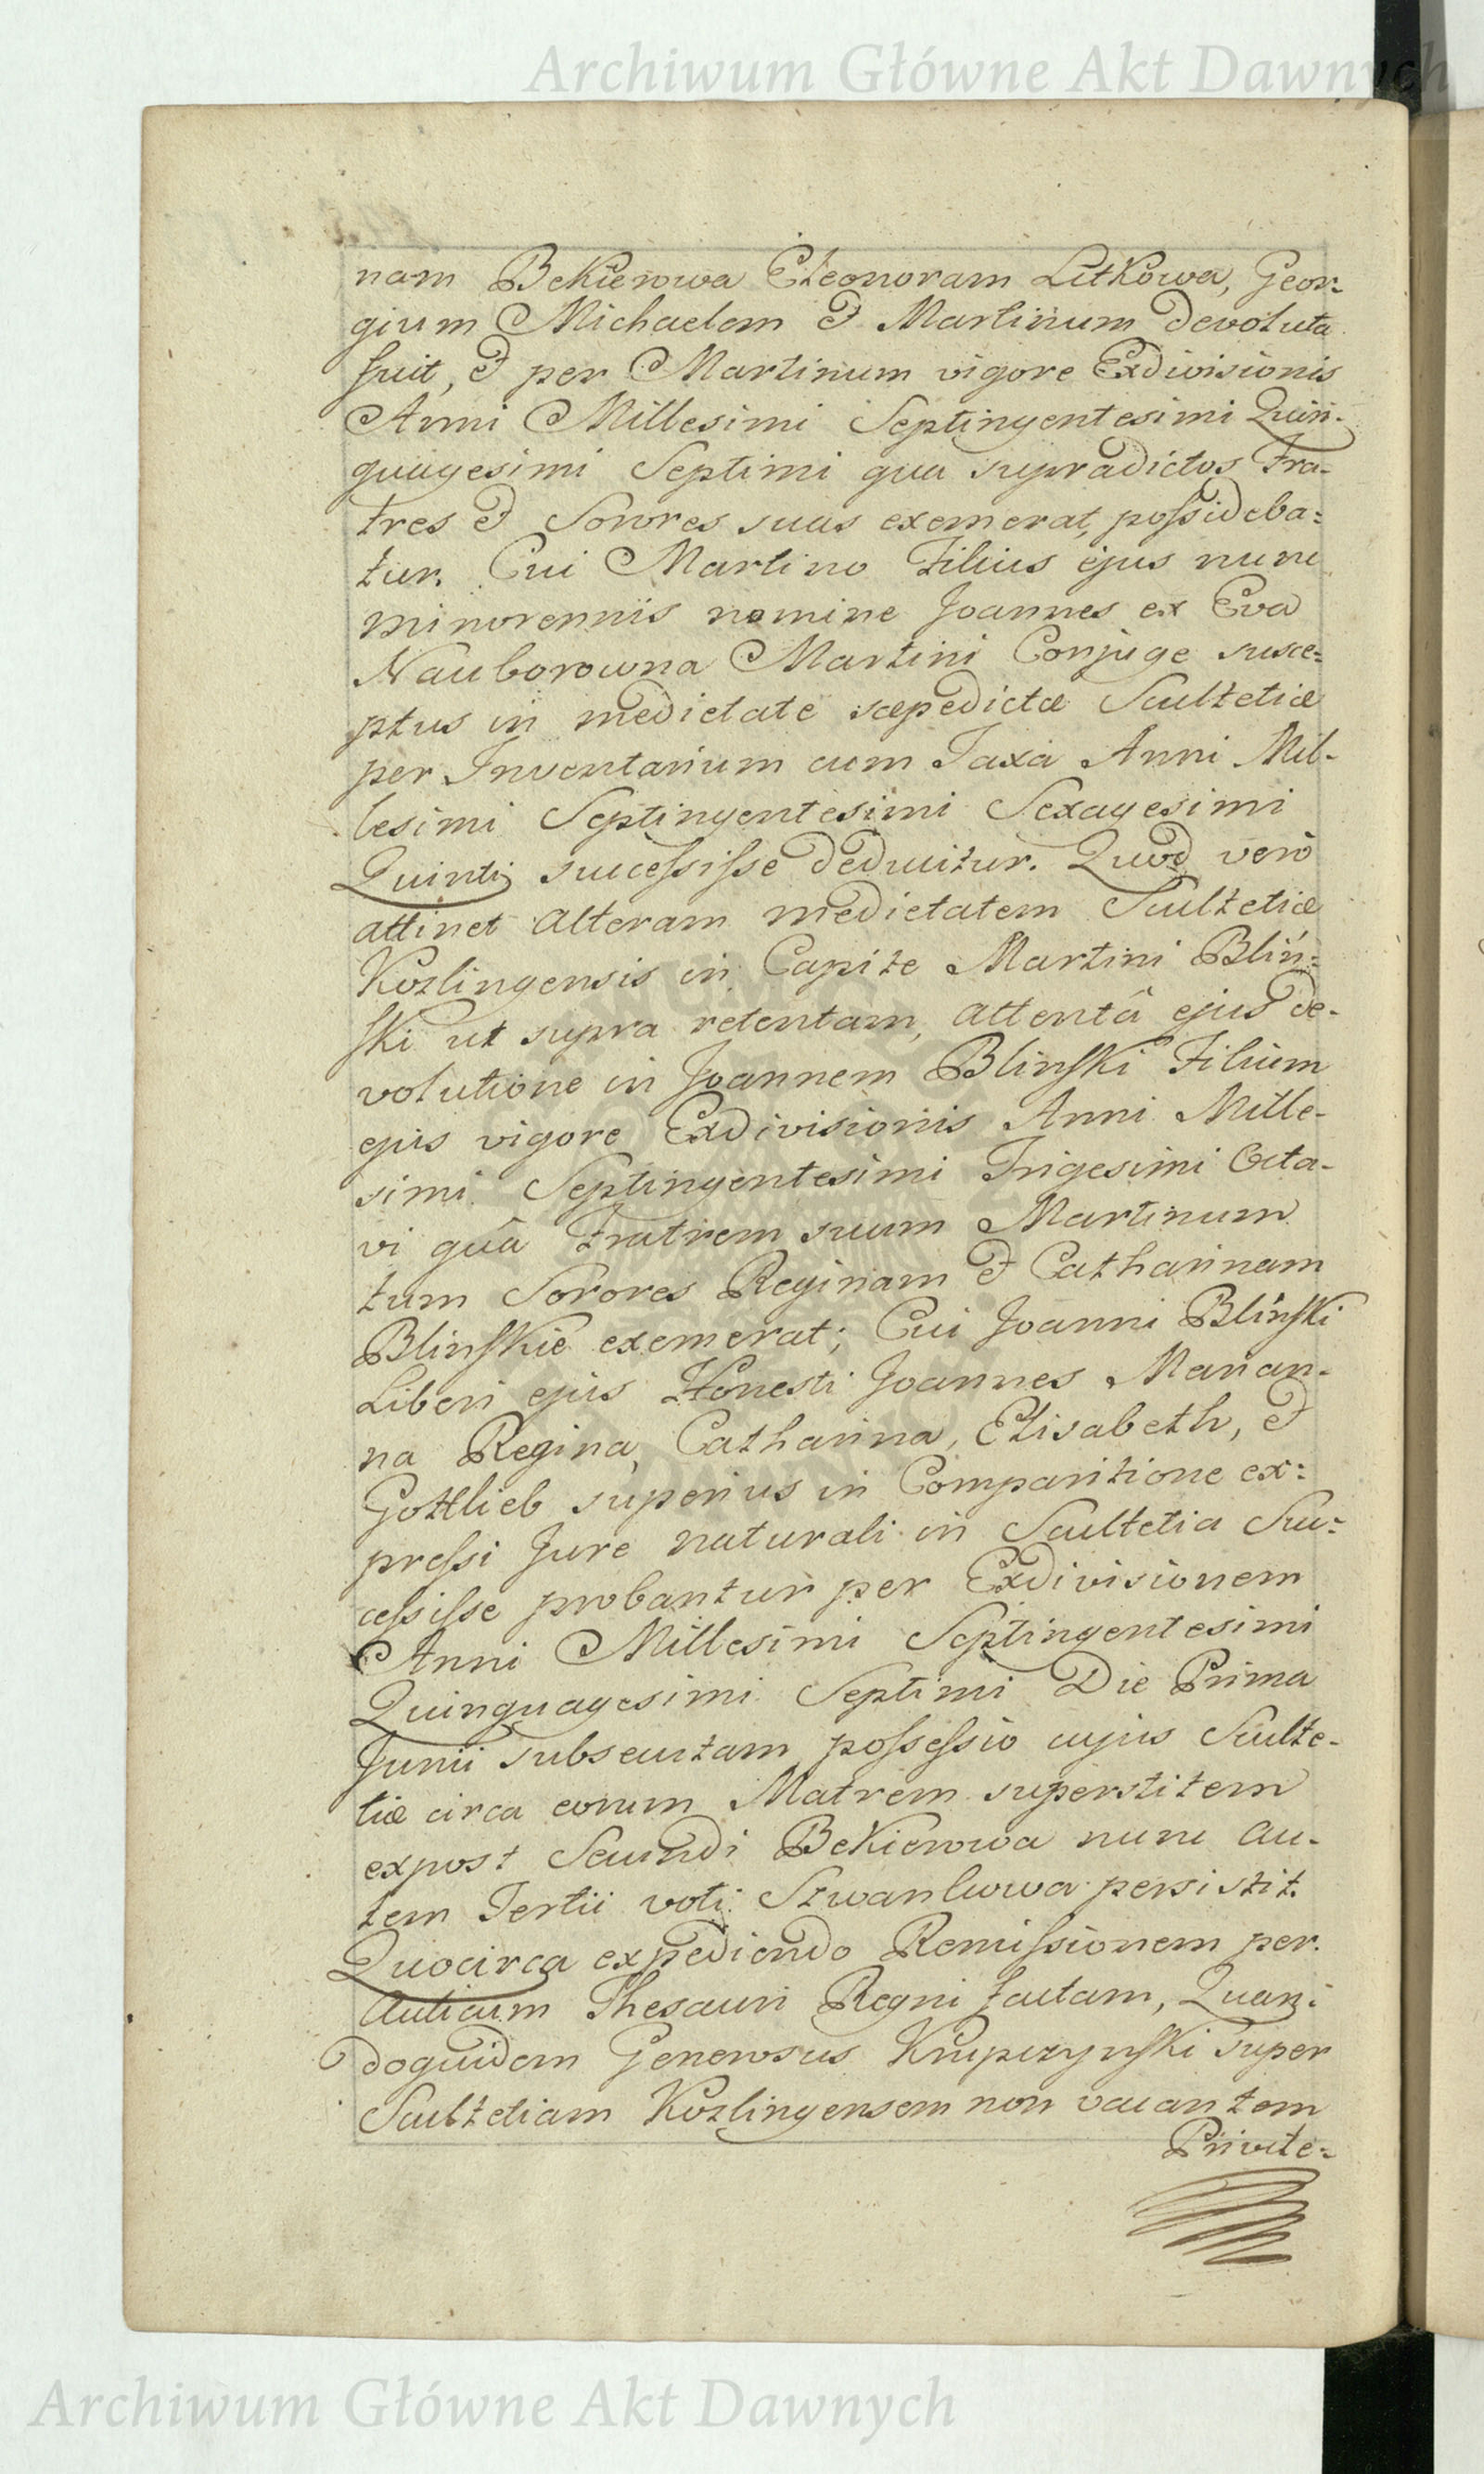 Archiwum Główne Akt Dawnych
nam Bekierowa Eleonoram Litkowa, Geor-
gium Michaelem & Martinum devoluta
fuit, & per Martinum vigore Exdivisionis
Anni Millesimi Septingentesimi Quin-
quagesimi Septimi qua supradictos Fra-
tres & Sorores suas exemerat, possideba=
tur. Cui Martino Filius ejus nunc
minorennis nomine Joannes ex Eva
Nauborowna Martini Conjuge susce=
ptus in medietate sæpedictæ Scultetiæ
per Inventarium cum Taxa Anni Mil-
lesimi Septingentesimi Sexagesimi
Quinti successisse deducitur. Quod verò
attinet alteram medietatem Scultetiæ
Kozlingensis in Capite Martini Bliń=
ski ut supra retentam, attentâ ejus de-
volutione in Joannem Blinski Filium
ejus vigore Exdivisionis Anni Mille-
simi Septingentesimi Trigesimi Octa-
vi quâ Fratrem suum Martinum
tum Sorores Reginam & Catharinam
Blinskie exemerat; Cui Joanni Blinski
Liberi ejus Honesti Joannes Marian-
na Regina, Catharina, Elisabeth, &
Gottlieb superius in Comparitione ex=
pressi Jure naturali in Scultetia Suc=
cessisse probantur per Exdivisionem
Anni Millesimi Septingentesimi
Quinquagesimi Septimi Die Prima
Junii subsecutam possessio cujus Sculte-
tiæ circa eorum Matrem superstitem
expost Secundi Bekierowa nunc au-
tem Tertii voti Szwanlowa persistit.
Quocirca expediendo Remissionem per
Auticum Thesauri Regni factam, Quan=
doquidem Generosus Krupczynski super
Scultetiam Kozlingensem non vacantem
Privile=
Archiwum Główne Akt Dawnych